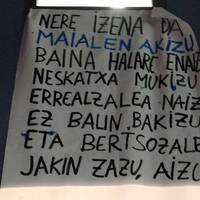 NERE IZENA DA
MAIALEN AKIZU
BAINA HALARE ENAIZ
NESKATXA MUKIZU
ERREALZALEA NAIZ
EZ BALIN BAKIZU
ETA BERTSOZALE
JAKIN ZAZU, AIZU